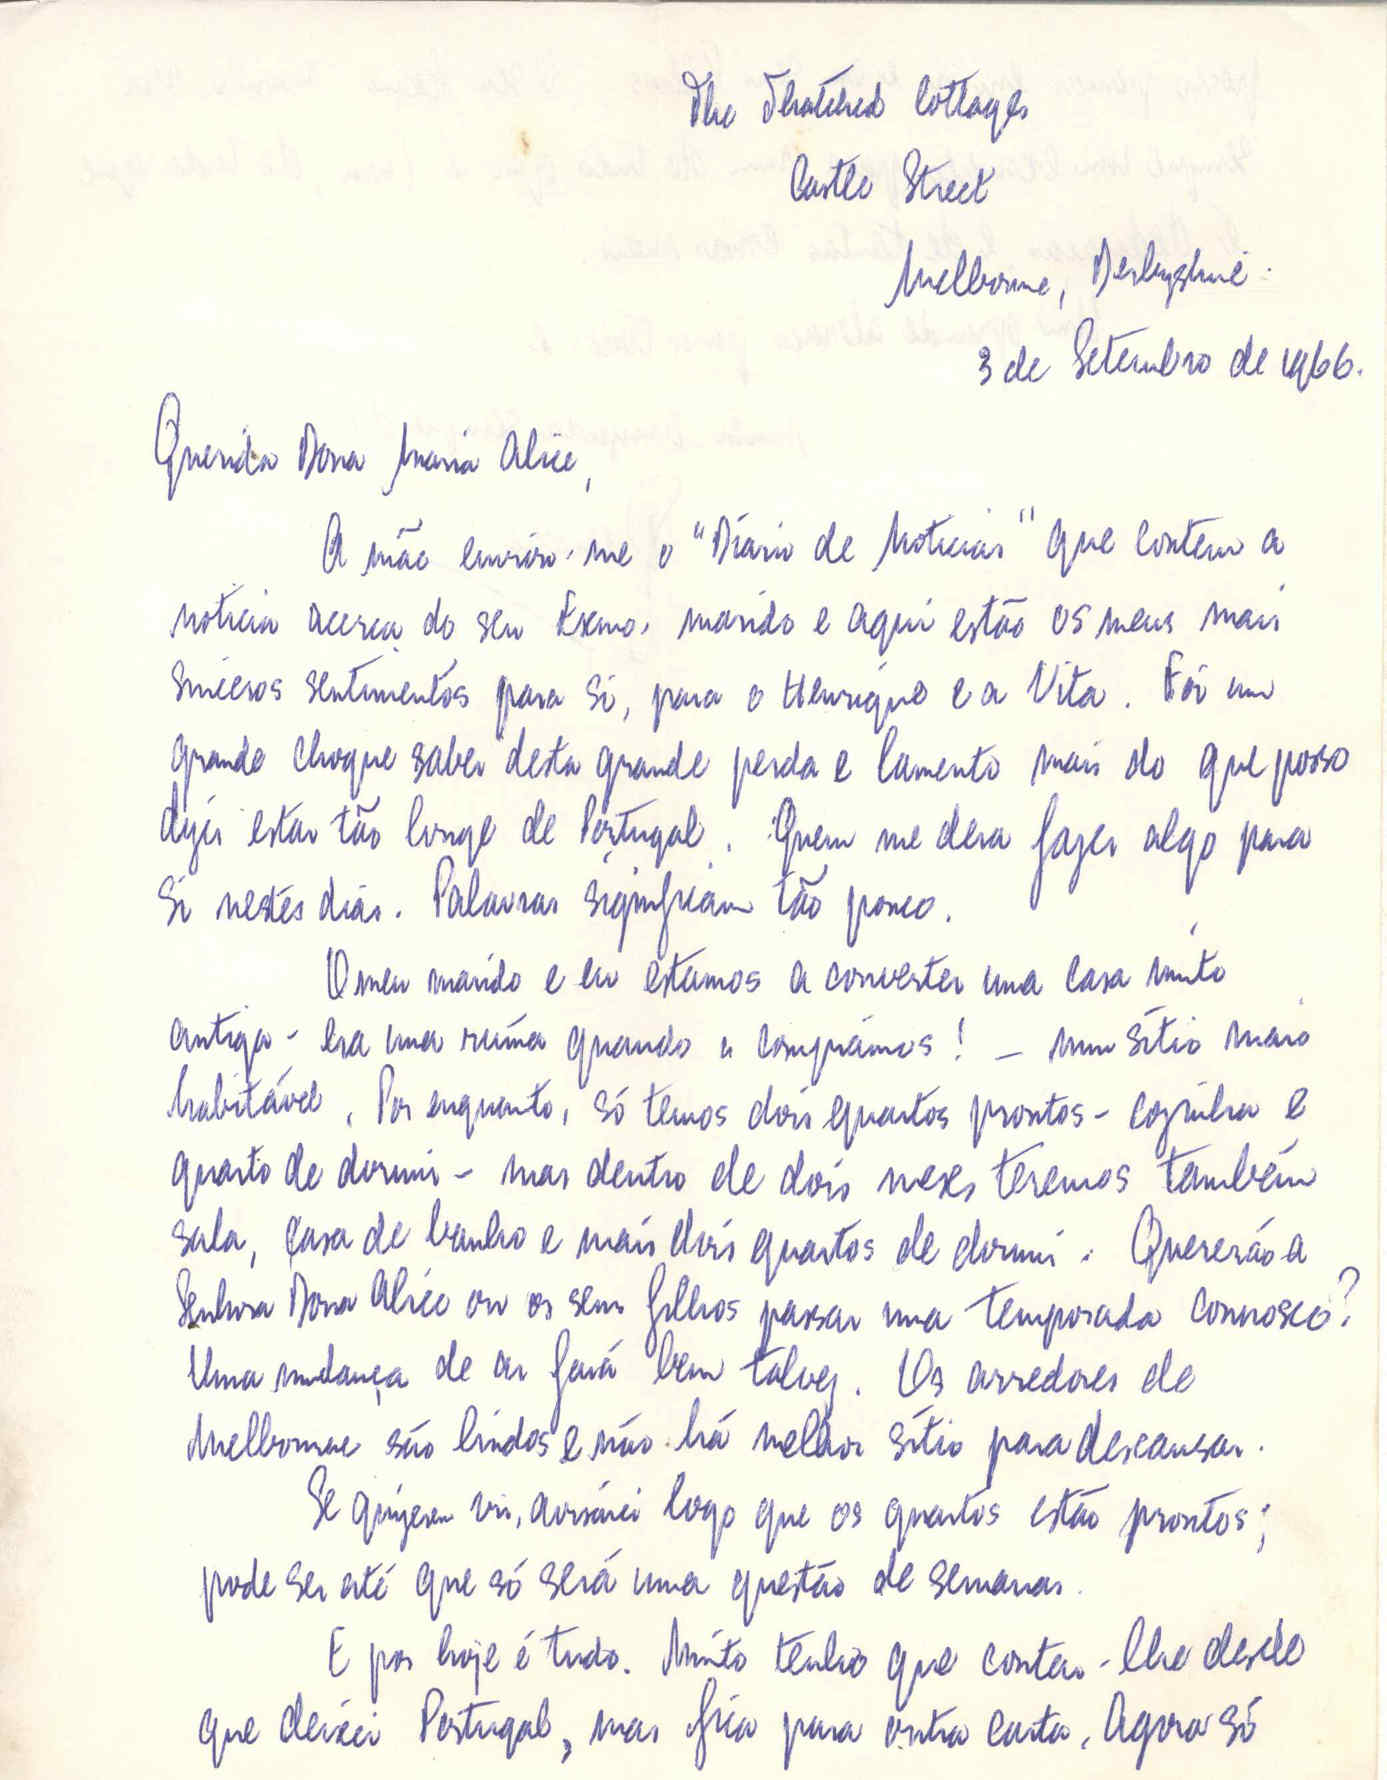 The Thatched Cottages
Castle Street
Melbourne, Derbyshire.
3 de Setembro de 1966.
Querida Dona Maria Alice,
A mãe enviou-me o "Diário de Noticias" que contem a
noticia acerca do seu Exmo. marido e aqui estão os meus mais
sinceros sentimentos para si, para o Henrique e a Vita. Foi um
grande choque saber desta grande perda e lamento mais do que posso
dizer estar tão longe de Portugal. Quem me dera fazer algo para
si nestes dias. Palavras significam tão pouco.
O meu marido e eu estamos a converter uma casa muito
antiga - era uma ruína quando a comprámos! - num sítio mais
habitável. Por enquanto, só temos dois quartos prontos - cozinha e
quarto de dormir - mas dentro de dois meses teremos também
sala, casa de banho e mais dois quartos de dormir. Quererão a
Senhora Dona Alice ou os seus filhos passar uma temporada connosco?
Uma mudança de ar fará bem talvez. Os arredores de
Melbourne são lindos e não há melhor sítio para descansar.
Se quizerem vir, avisarei logo que os quartos estão prontos;
pode ser até que só será uma questão de semanas.
E por hoje é tudo. Muito tenho que contar-lhe desde
que deixei Portugal, mas fica para outra carta. Agora só